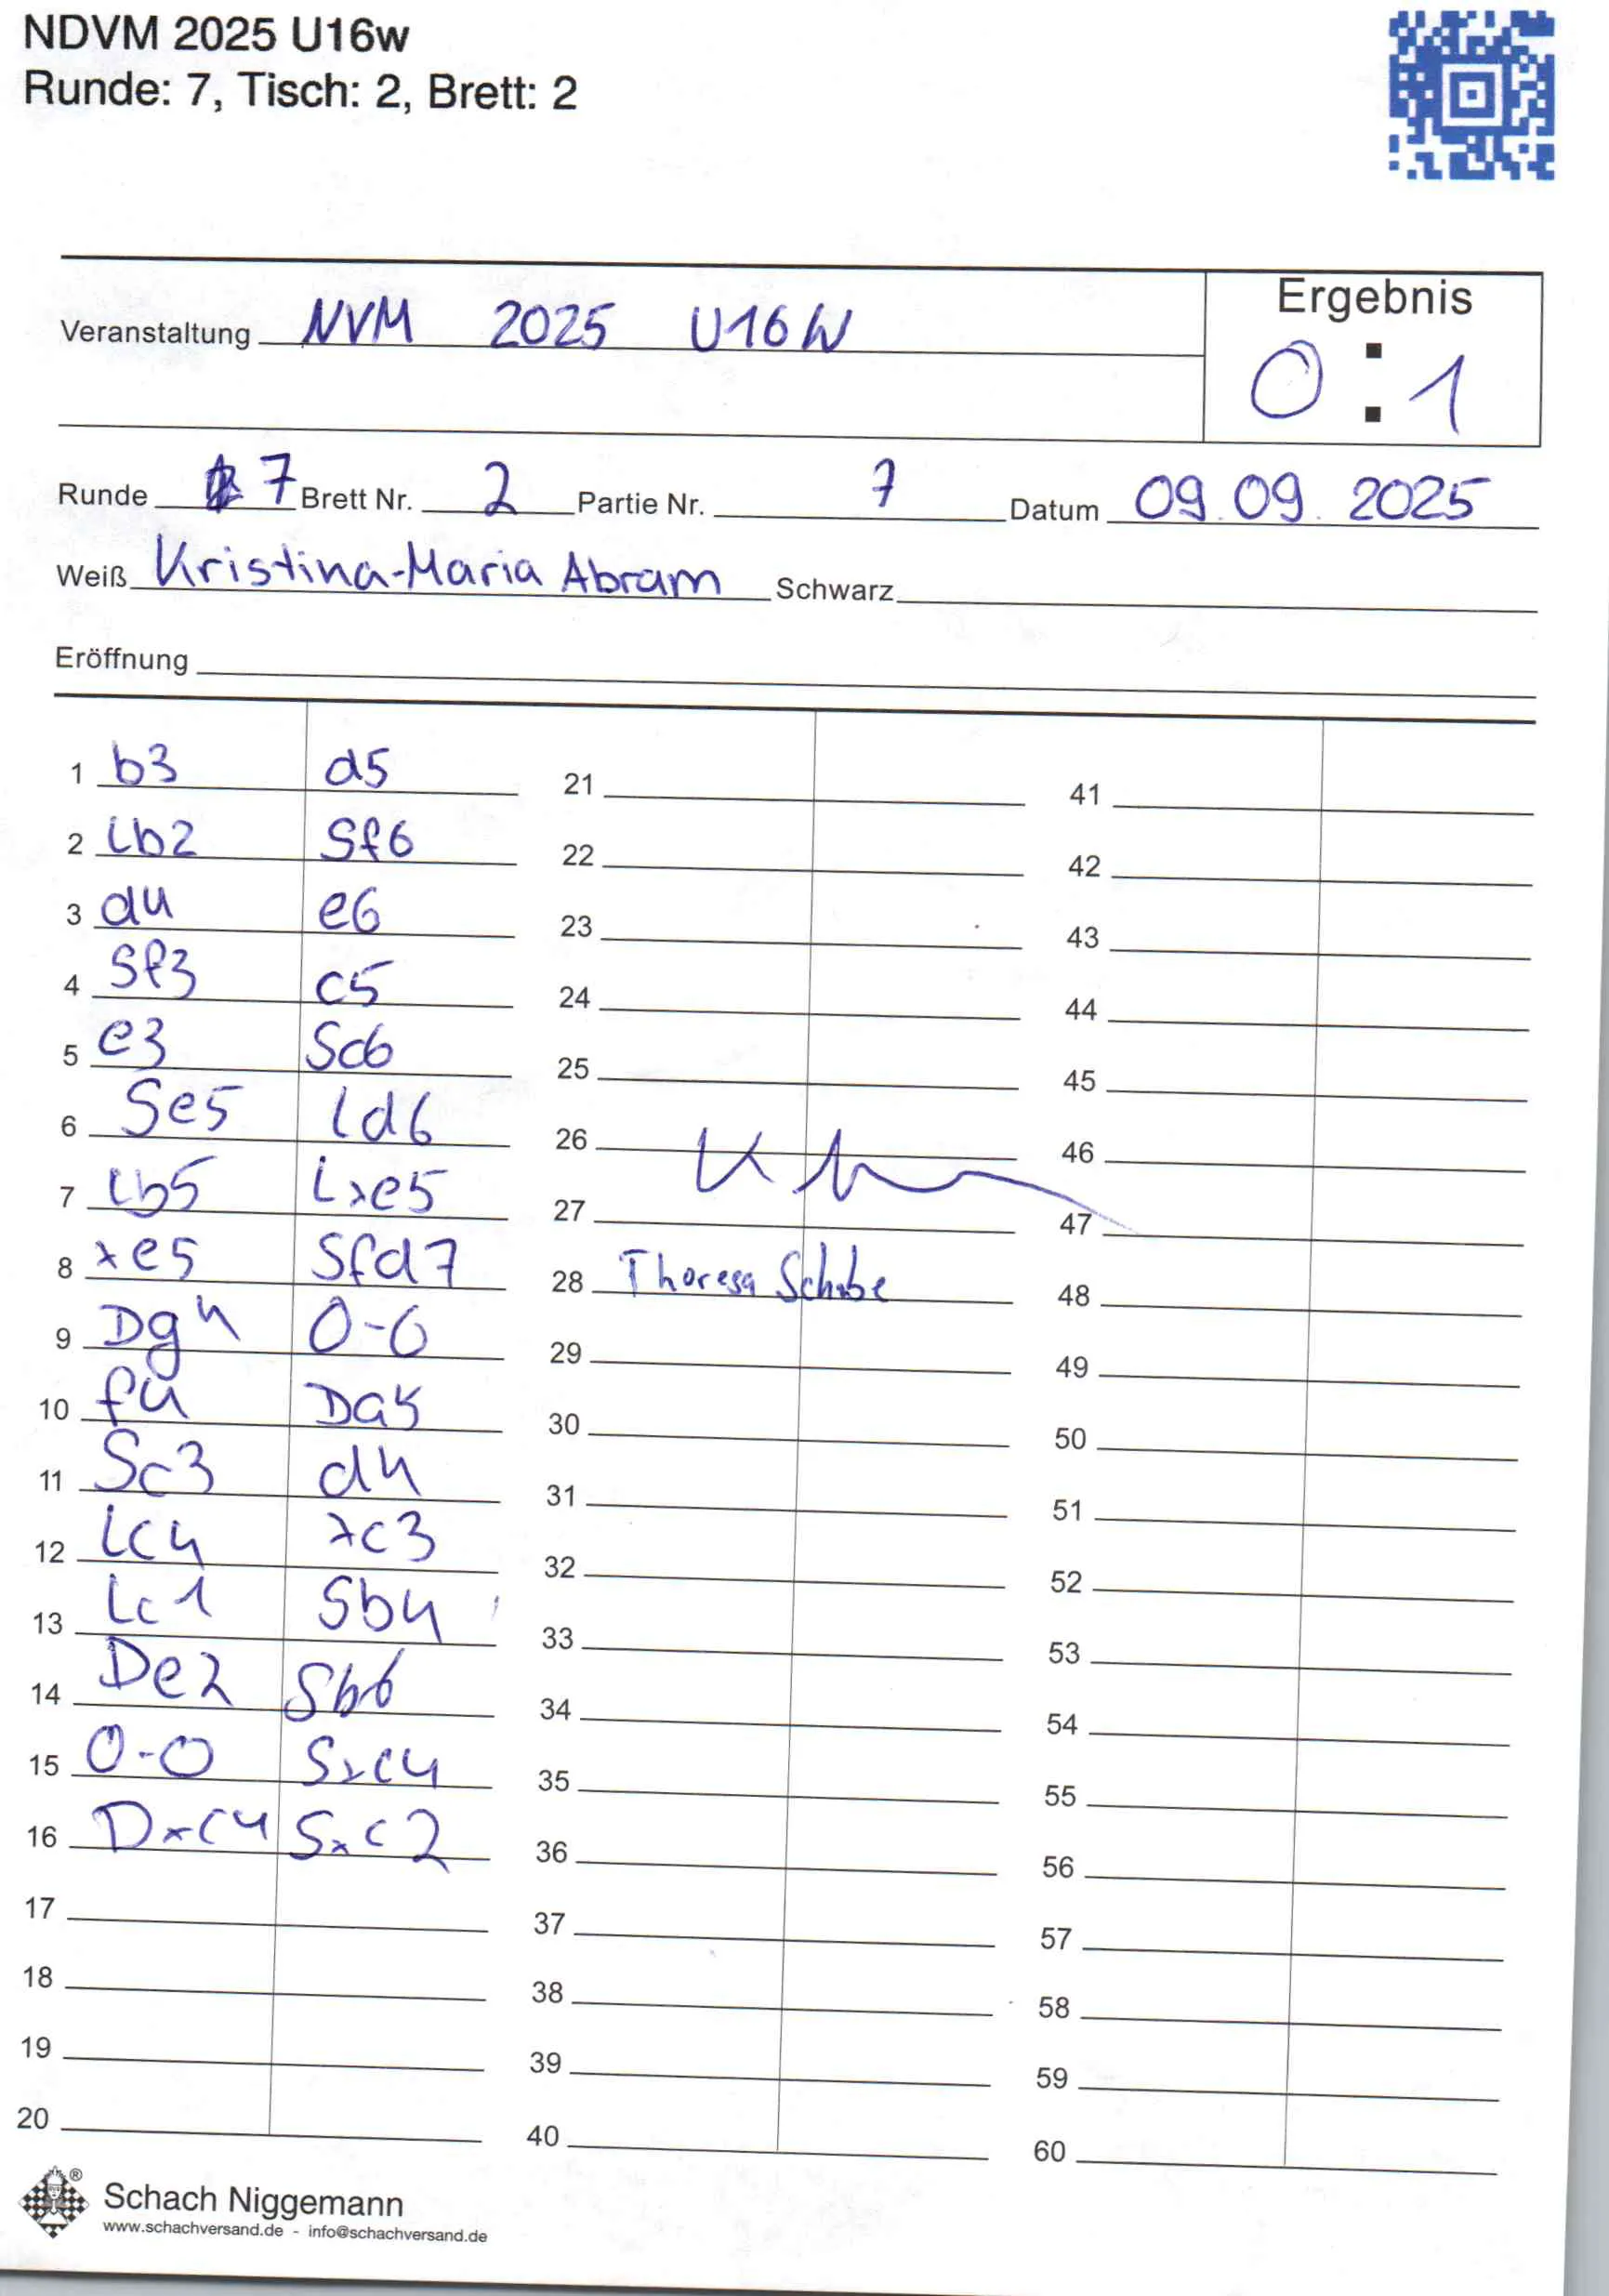 NDVM 2025 U16w
Runde: 7, Tisch: 2, Brett: 2
Ergebnis
Veranstaltung NVM 2025 U16W
0 : 1
Runde 7 Brett Nr. 2 Partie Nr. 7 Datum 09.09.2025
Weiß Kristina-Maria Abram Schwarz
Eröffnung
1 b3 d5 21 41
2 Lb2 Sf6 22 42
3 d4 e6 23 43
4 Sf3 c5 24 44
5 e3 Sc6 25 45
6 Se5 Ld6 26 46
7 Lb5 Lxe5 27 47
8 xe5 Sfd7 28 Theresa 48
9 Dg4 0-0 29 49
10 f4 Da5 30 50
11 Sc3 d4 31 51
12 Lc4 xc3 32 52
13 Lc1 Sb4 33 53
14 De2 Sb6 34 54
15 0-0 Sxc4 35 55
16 Dxc4 Sxc2 36 56
17 37 57
18 38 58
19 39 59
20 40 60
Schach Niggemann
www.schachversand.de - info@schachversand.de